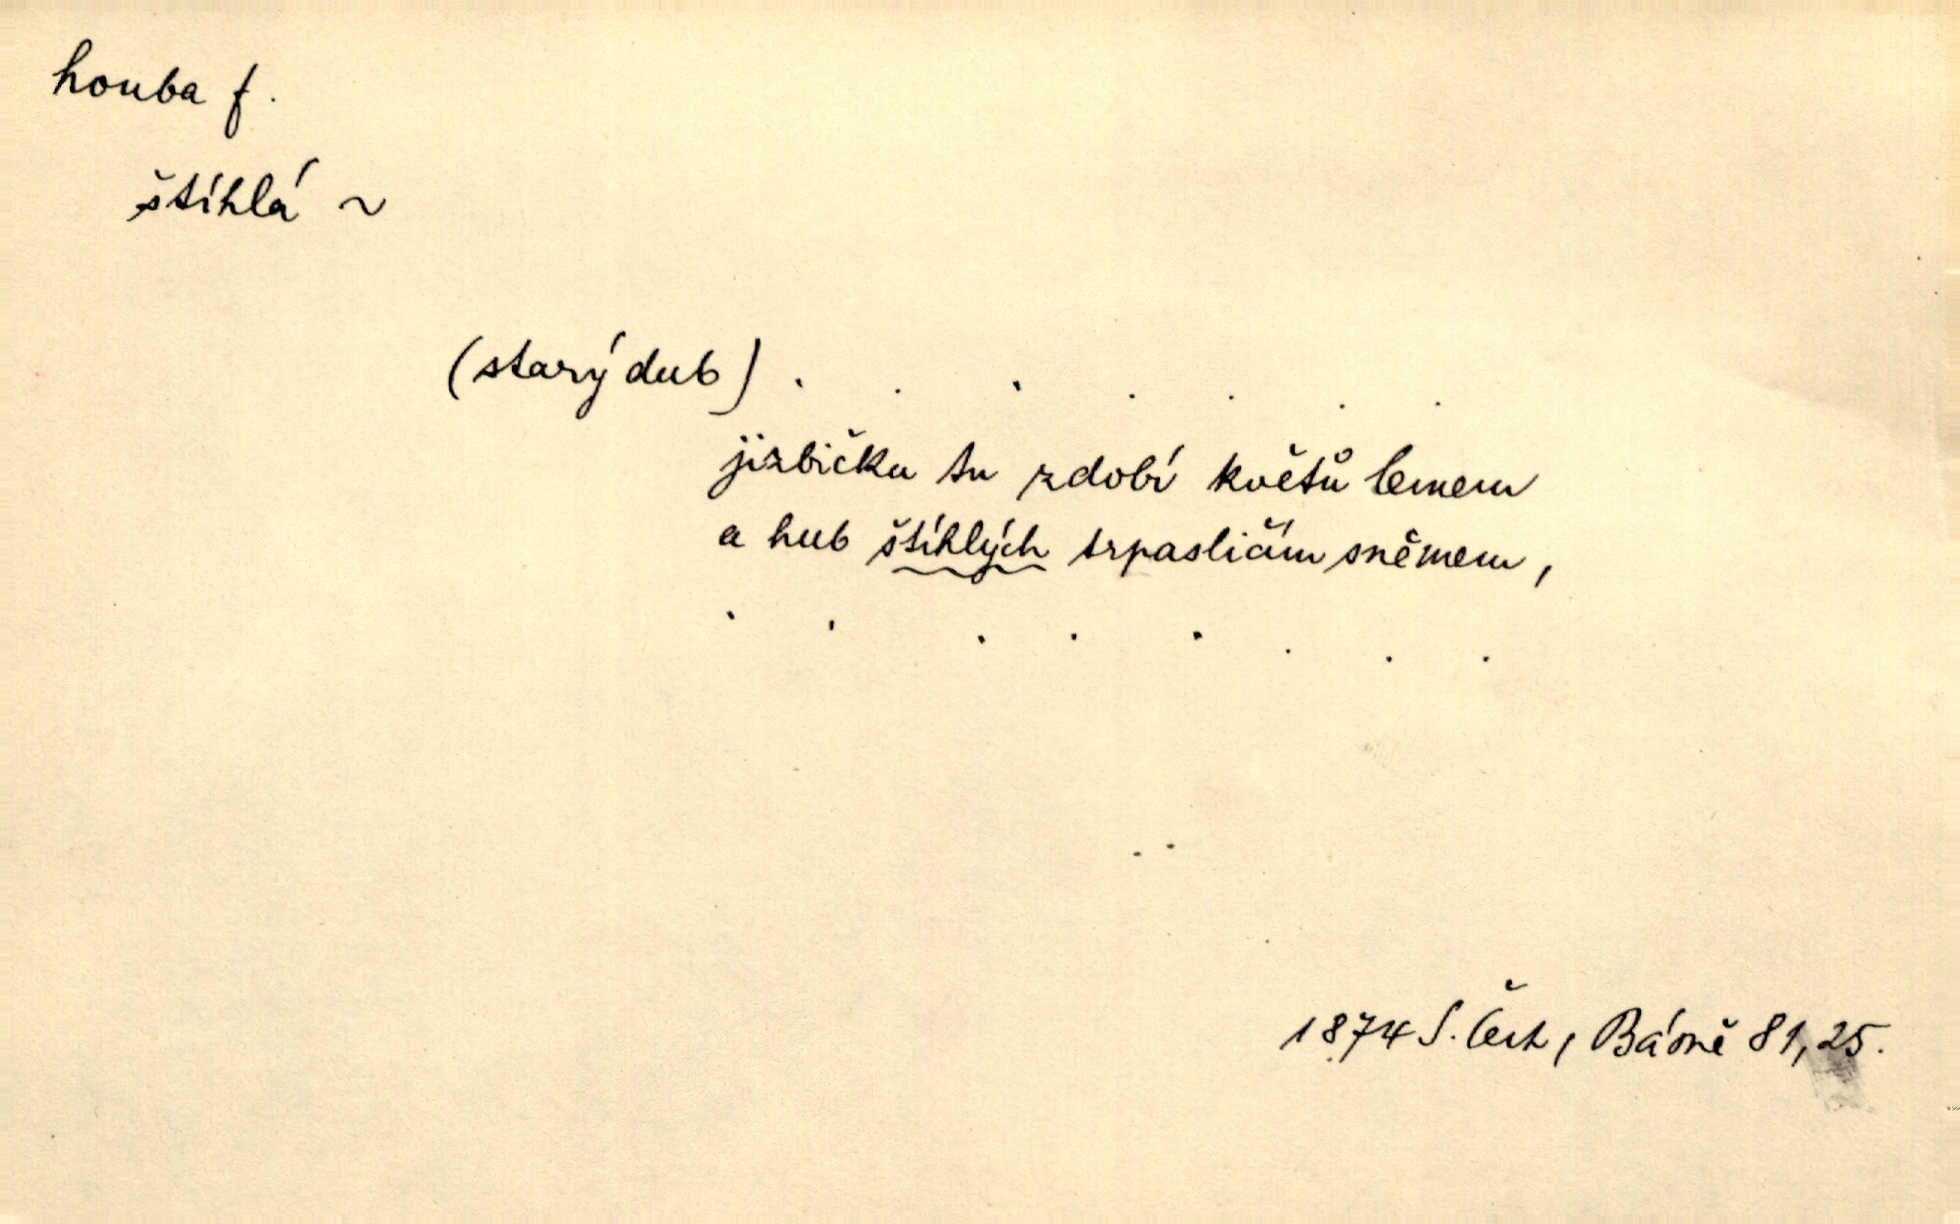 houba f.
štíhlá ~
(starý dub) . . . . . . .
jizbičku tu zdobí květů lemem
a hub štíhlých trpasličím sněmem,
. . . . . . . .
1874 S. Čech, Básně 81, 25.